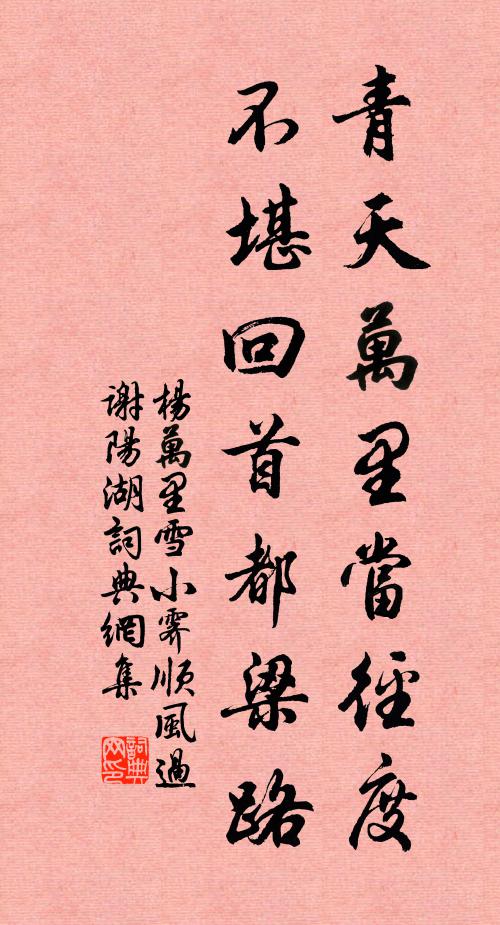 青天萬里當徑度
不堪回首都梁路
楊萬里雪小霽順風過
謝陽湖詞典網集
詞典網印